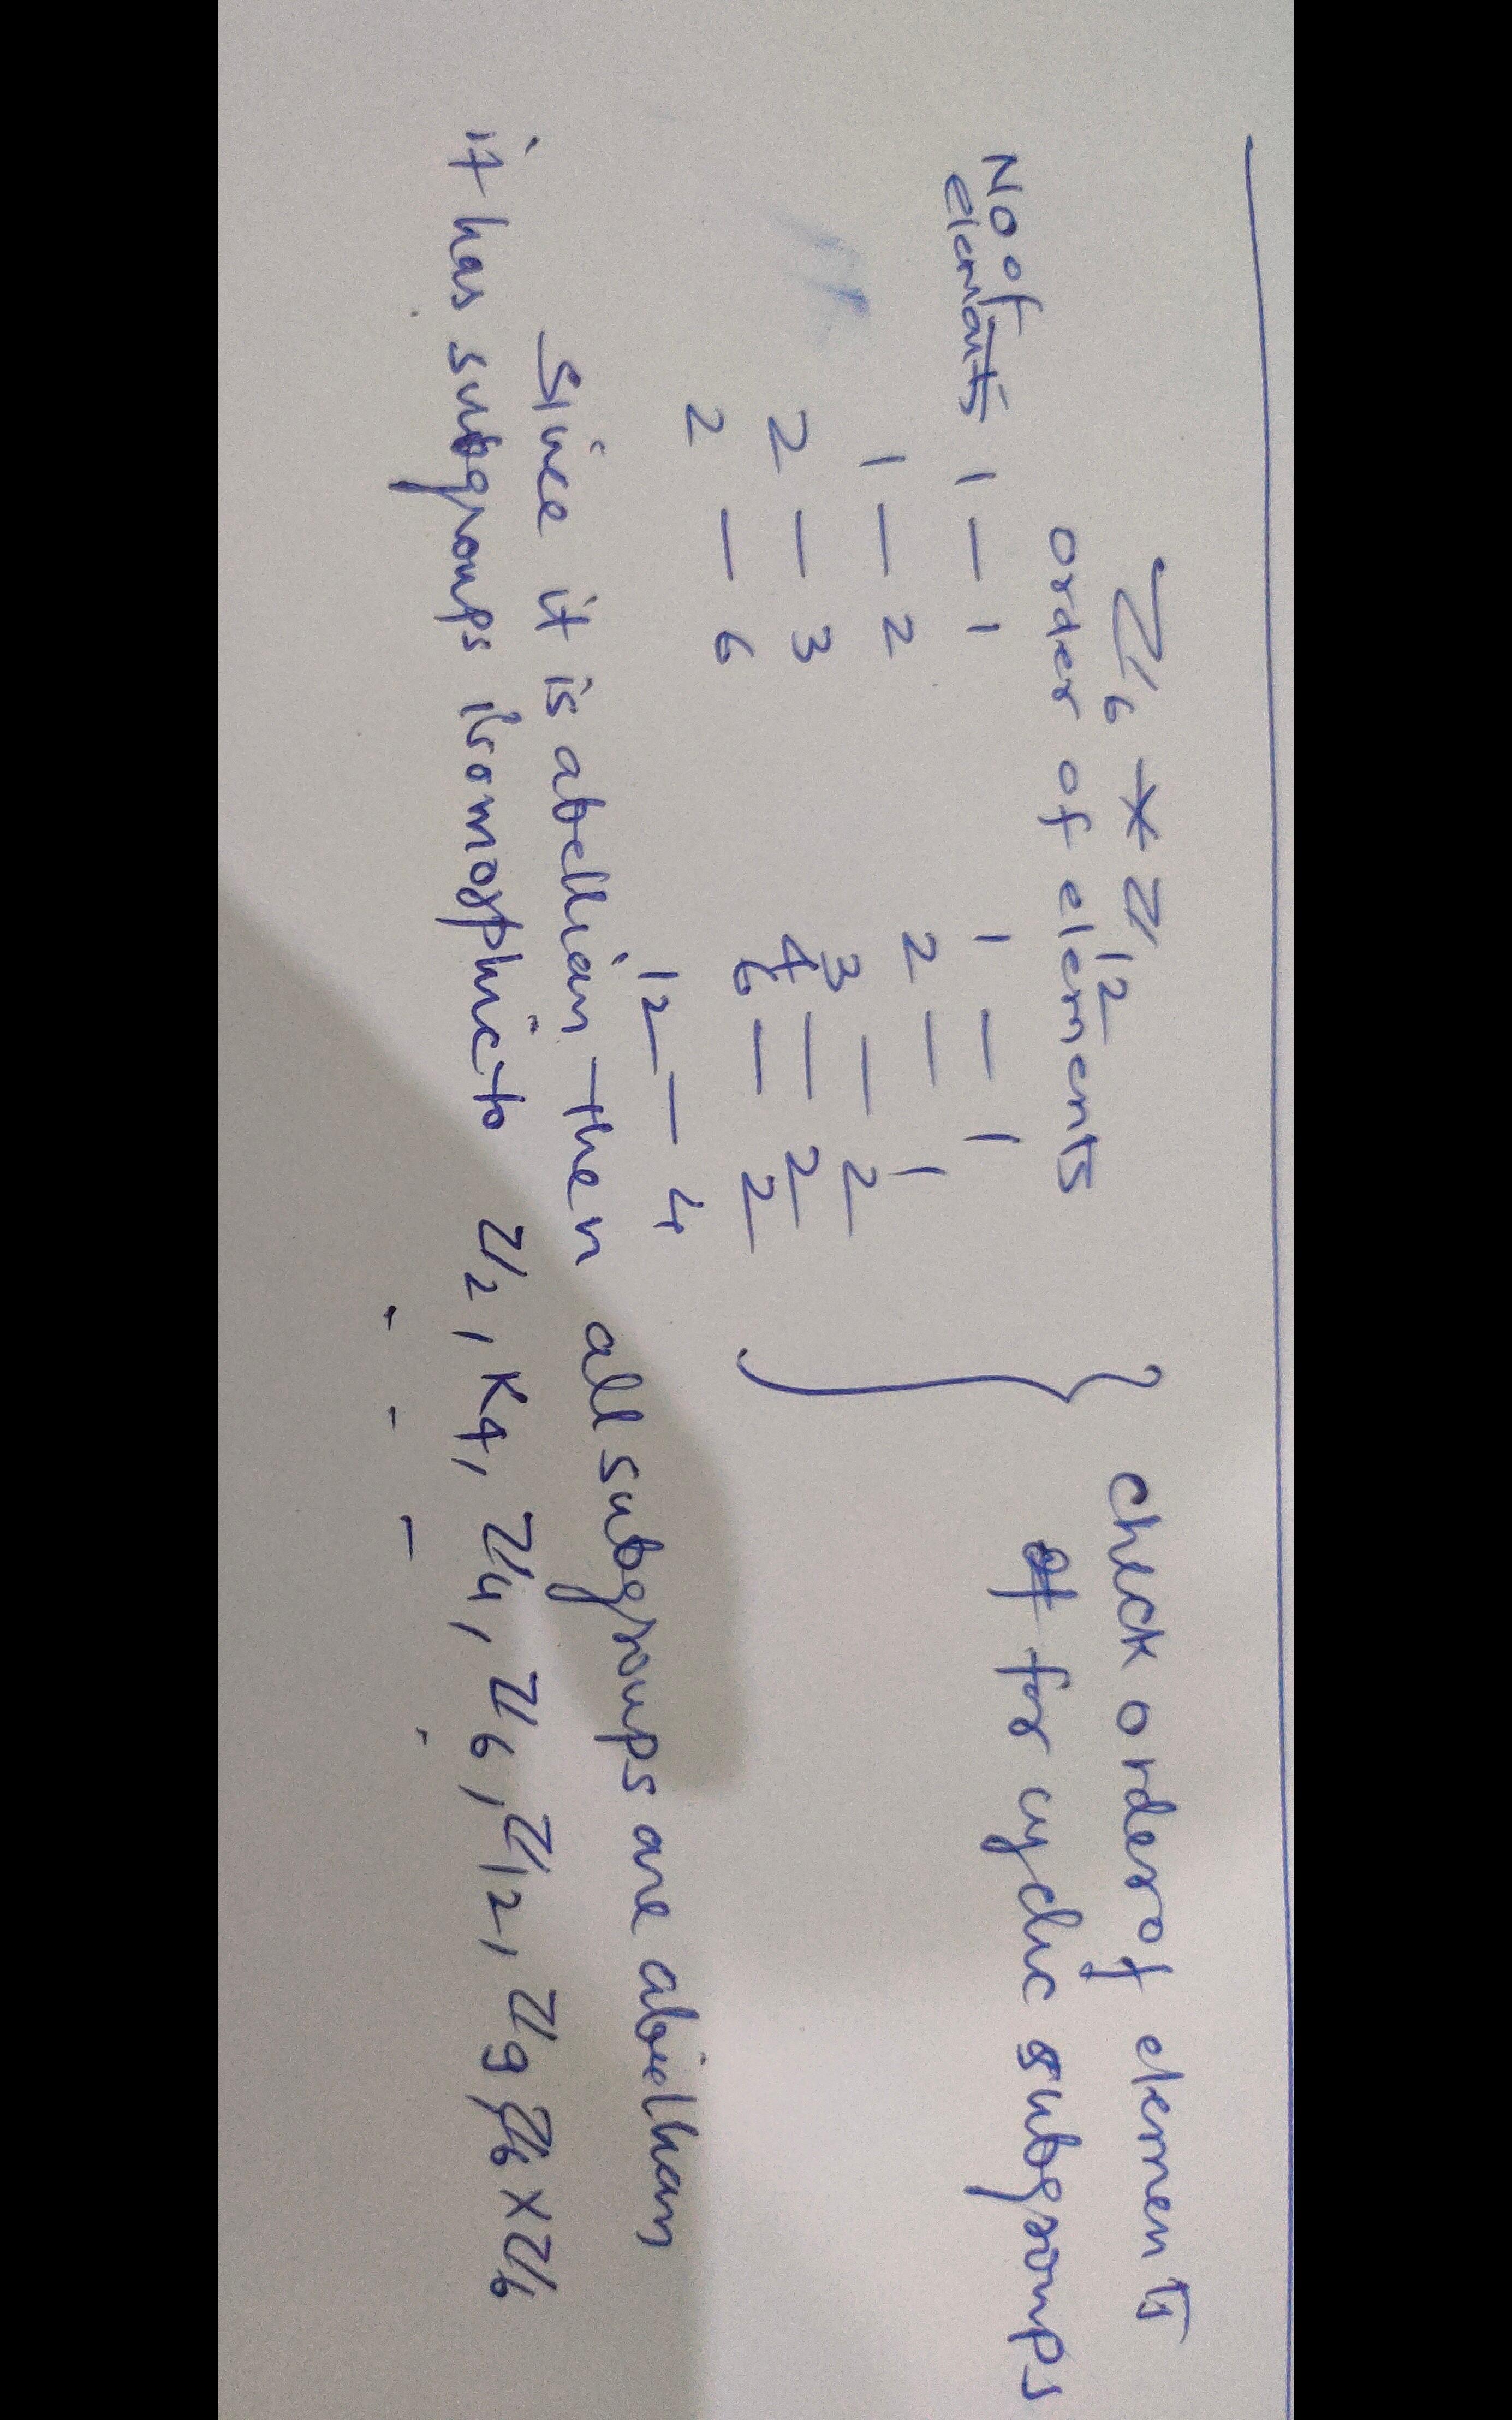 ℤ6 × ℤ12
order of elements
No of elements
1 — 1
1 — 2
2 — 3
2 — 6
1 — 1
2 — 1
3 — 2
4 — 2
6 — 2
12 — 4
} check order of elements
for cyclic subgroups
Since it is abellian then all subgroups are abiellian
it has subgroups isomorphic to ℤ2, K4, ℤ4, ℤ6, ℤ12, ℤ9, ℤ6 × ℤ6